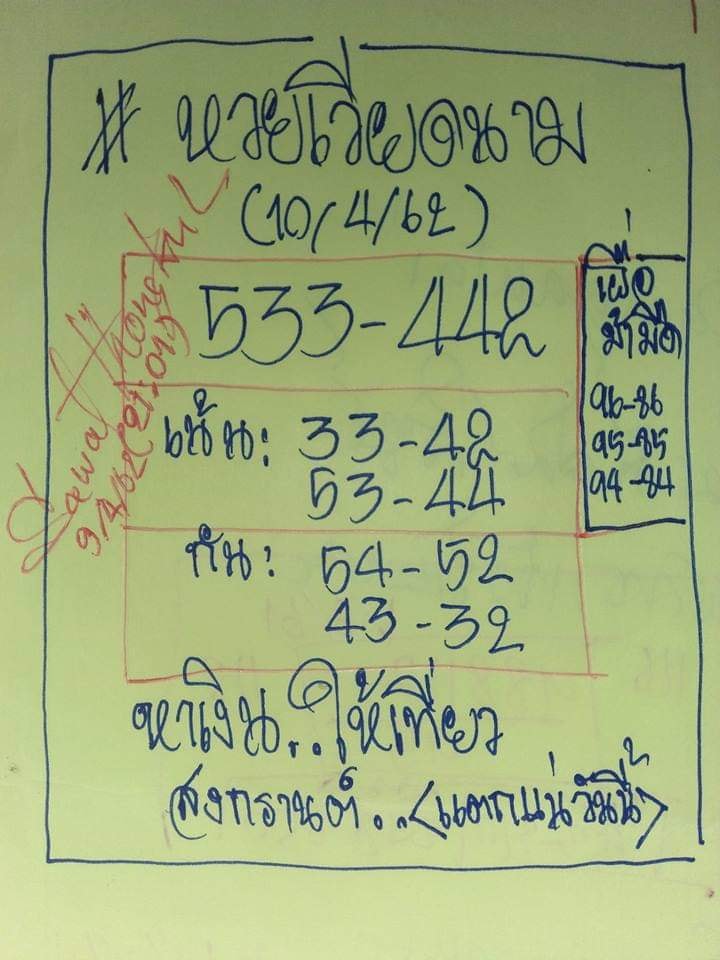 # หวยเวียดนาม
(10/4/62)
533-442
เน้น: 33-42
53-44
กัน: 54-52
43-32
หาเงิน..ให้เที่ยว
สงกรานต์..<แตกแน่วันนี้>
เผื่อ
ม้ามืด
96-86
95-85
94-84